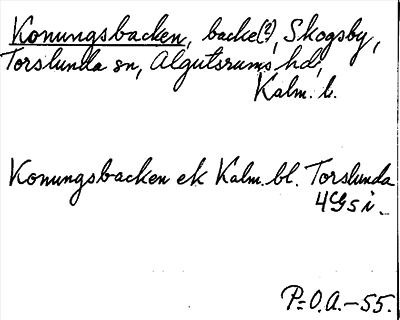 Konungsbacken, backe(?), Skogsby,
Torslunda sn, Algutsrums hd,
Kalm. l.
Konungsbacken ek Kalm. bl. Torslunda
4Gg5i.
P=O.A.-55.